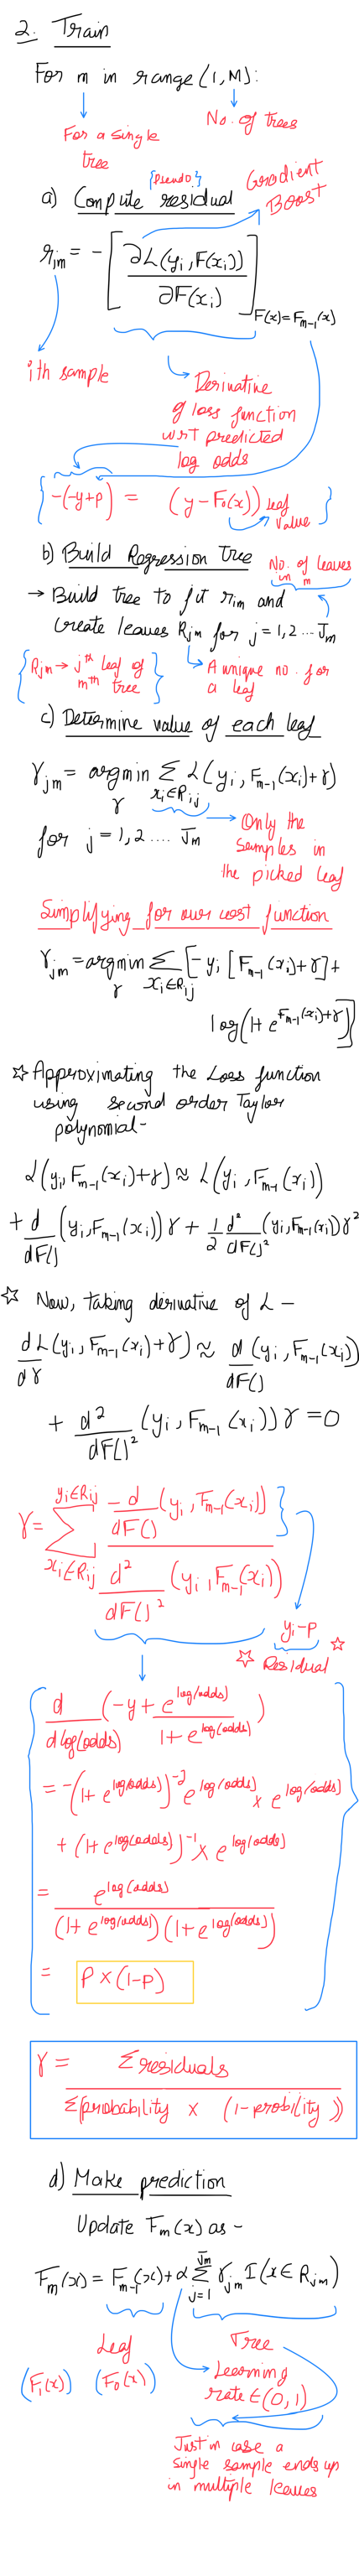 2. Train
For m in range (1, M):
For a single tree
No. of trees
{Pseudo}
a) Compute residual
Gradient Boost
r_im = - [∂L(y_i, F(x_i)) / ∂F(x_i)] F(x)=F_m-1(x)
ith sample
Derivative
of loss function
wrt predicted
log odds
{-(-y+p) = (y - F_0(x)) Leaf value}
b) Build Regression tree
No. of leaves in m
→ Build tree to fit r_im and
create leaves R_jm for j = 1,2 ... J_m
{R_jm → jth leaf of
mth tree}
A unique no. for
a leaf
c) Determine value of each leaf
γ_jm = argmin_γ Σ_{x_i∈R_ij} L(y_i, F_m-1(x_i)+γ)
for j = 1,2 .... J_m
Only the
samples in
the picked leaf
Simplifying for our cost function
γ_jm = argmin_γ Σ_{x_i∈R_ij} [-y_i [F_m-1(x_i)+γ] +
log(1+ e^{F_m-1(x_i)+γ})]
☆ Approximating the Loss function
using second order Taylor
polynomial-
L(y_i, F_m-1(x_i)+γ) ≈ L(y_i, F_m-1(x_i))
+ d/dF() (y_i, F_m-1(x_i)) γ + 1/2 d²/dF()² (y_i, F_m-1(x_i)) γ²
☆ Now, taking derivative of L -
d/dγ L(y_i, F_m-1(x_i)+γ) ≈ d/dF() (y_i, F_m-1(x_i))
+ d²/dF()² (y_i, F_m-1(x_i)) γ = 0
γ = Σ_{x_i∈R_ij}^{y_i∈R_ij} -d/dF() (y_i, F_m-1(x_i))} / d²/dF()² (y_i, F_m-1(x_i))
y_i-p
☆ Residual ☆
d/dlog(odds) (-y + e^log(odds) / 1+e^log(odds))
= -(1+ e^log(odds))^-2 e^log(odds) × e^log(odds)
+ (1+ e^log(odds))^-1 × e^log(odds)
= e^log(odds) / (1+ e^log(odds)) (1+ e^log(odds))
= P × (1-P)
γ = Σresiduals / Σ(probability × (1-probility))
d) Make prediction
Update F_m(x) as -
F_m(x) = F_m-1(x) + α Σ_{j=1}^{J_m} γ_jm I(x ∈ R_jm)
Leaf
Tree
(F_1(x)) (F_0(x))
Learning
rate ∈ (0,1)
Just in case a
single sample ends up
in multiple leaves